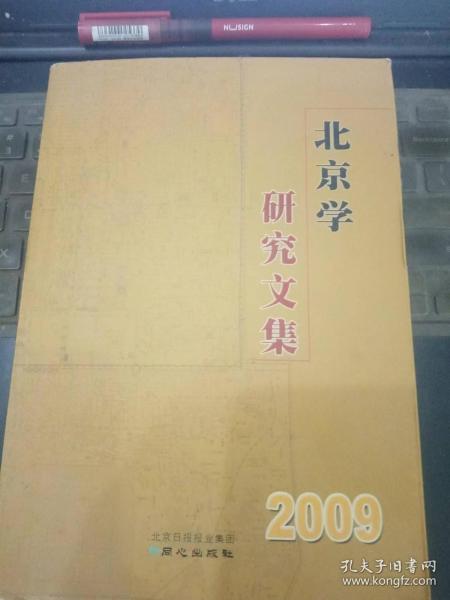 NUSIGN
北京学
研究文集
2009
北京日报报业集团
同心出版社
孔夫子旧书网
www.kongfz.com